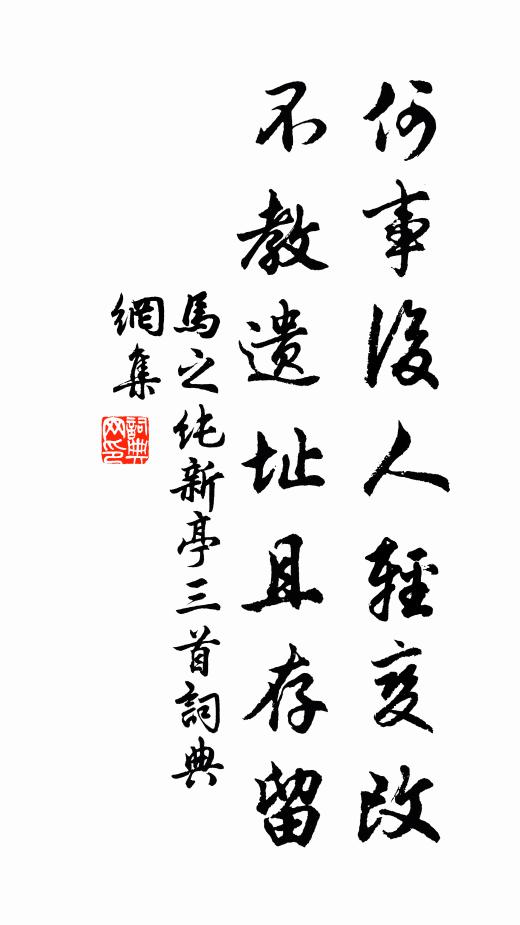 何事後人輕变改
不教遗址且存留
馬之純新亭三首詞典
網集
詞典
网印